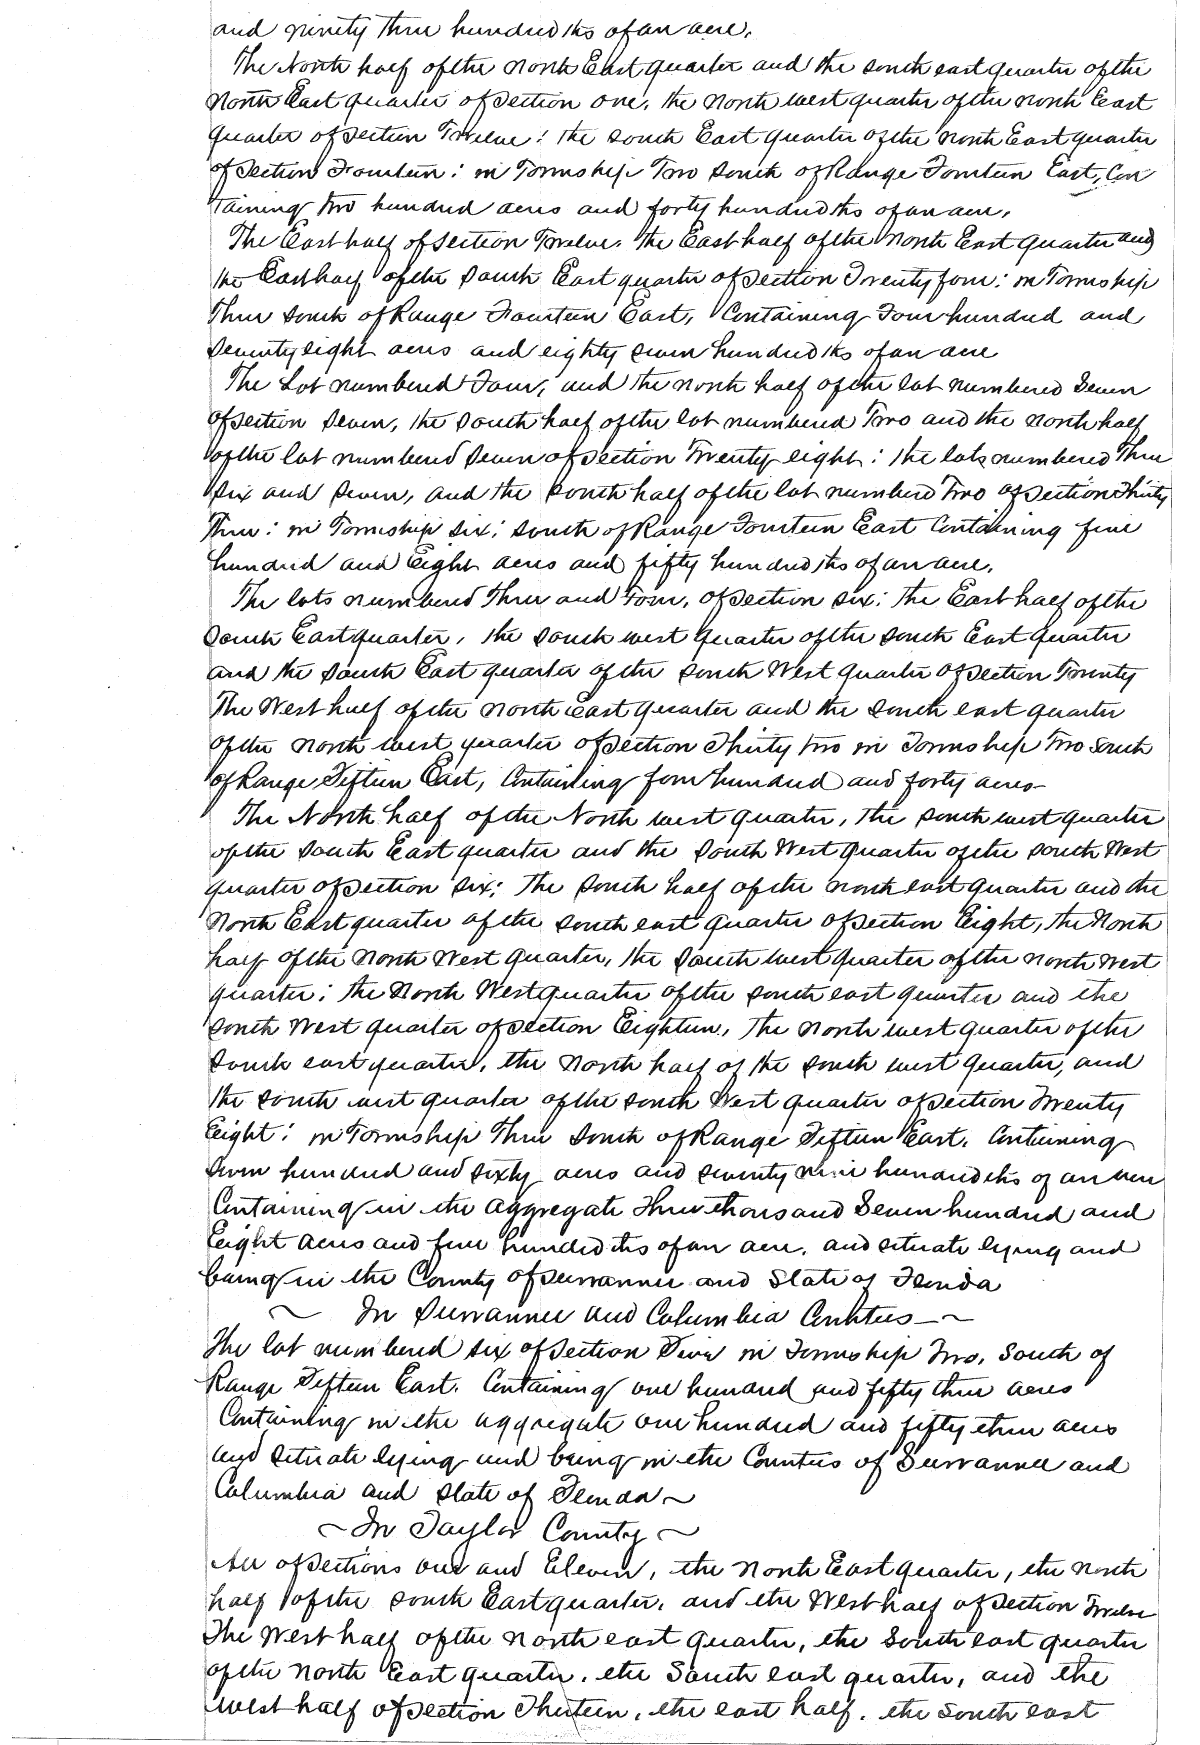 and ninety three hundredths of an acre.
The North half of the North East quarter and the south east quarter of the
North East quarter of section one, the North west quarter of the north East
quarter of section Twelve: the South East quarter of the North East quarter
of Section Fourteen: in Township Two South of Range Fourteen East, Con
taining two hundred acres and forty hundredths of an acre.
The East half of Section Twelve, the East half of the North East quarter and
the East half of the South East quarter of section Twenty four: in Township
Three South of Range Fourteen East, Containing Four hundred and
Seventy eight acres and eighty seven hundredths of an acre
The Lot numbered Four, and the north half of the lot numbered Seven
of section seven, the South half of the lot numbered Two and the North half
of the lot numbered Seven of section Twenty eight: the lots numbered Three
six and seven, and the south half of the lot numbered Two of section Thirty
Three: in Township six: south of Range Fourteen East Containing five
hundred and Eight acres and fifty hundredths of an acre.
The lots numbered Three and Four, of section six: the East half of the
South East quarter, the south west quarter of the south East quarter
and the South East quarter of the South West quarter of section Twenty
The West half of the North East quarter and the South east quarter
of the North west quarter of section Thirty two in Township Two South
of Range Fifteen East, Containing four hundred and forty acres
The North half of the North west quarter, the south west quarter
of the South East quarter and the South West quarter of the South West
quarter of section six: The South half of the north east quarter and the
North East quarter of the south east quarter of section Eight, the North
half of the North West quarter, the South west quarter of the North West
quarter: the North West quarter of the south east quarter and the
South West quarter of section Eighteen, The North west quarter of the
South east quarter, the North half of the south west quarter, and
the South west quarter of the South West quarter of section Twenty
Eight: in Township Three South of Range Fifteen East. Containing
Seven hundred and sixty acres and seventy nine hundredths of an acre
Containing in the aggregate Three thousand Seven hundred and
Eight acres and five hundredths of an acre, and situate lying and
being in the County of Suwannee and State of Florida
~ In Suwannee and Columbia Counties ~
The lot numbered six of Section Five in Township Two, South of
Range Fifteen East. Containing one hundred and fifty three acres
Containing in the aggregate one hundred and fifty three acres
and situate lying and being in the Counties of Suwannee and
Columbia and State of Florida ~
~ In Taylor County ~
All of Sections one and Eleven, the North East quarter, the North
half of the South East quarter, and the West half of section Twelve
The West half of the North east quarter, the South east quarter
of the North East quarter, the South east quarter, and the
West half of section Thirteen, the east half, the South east